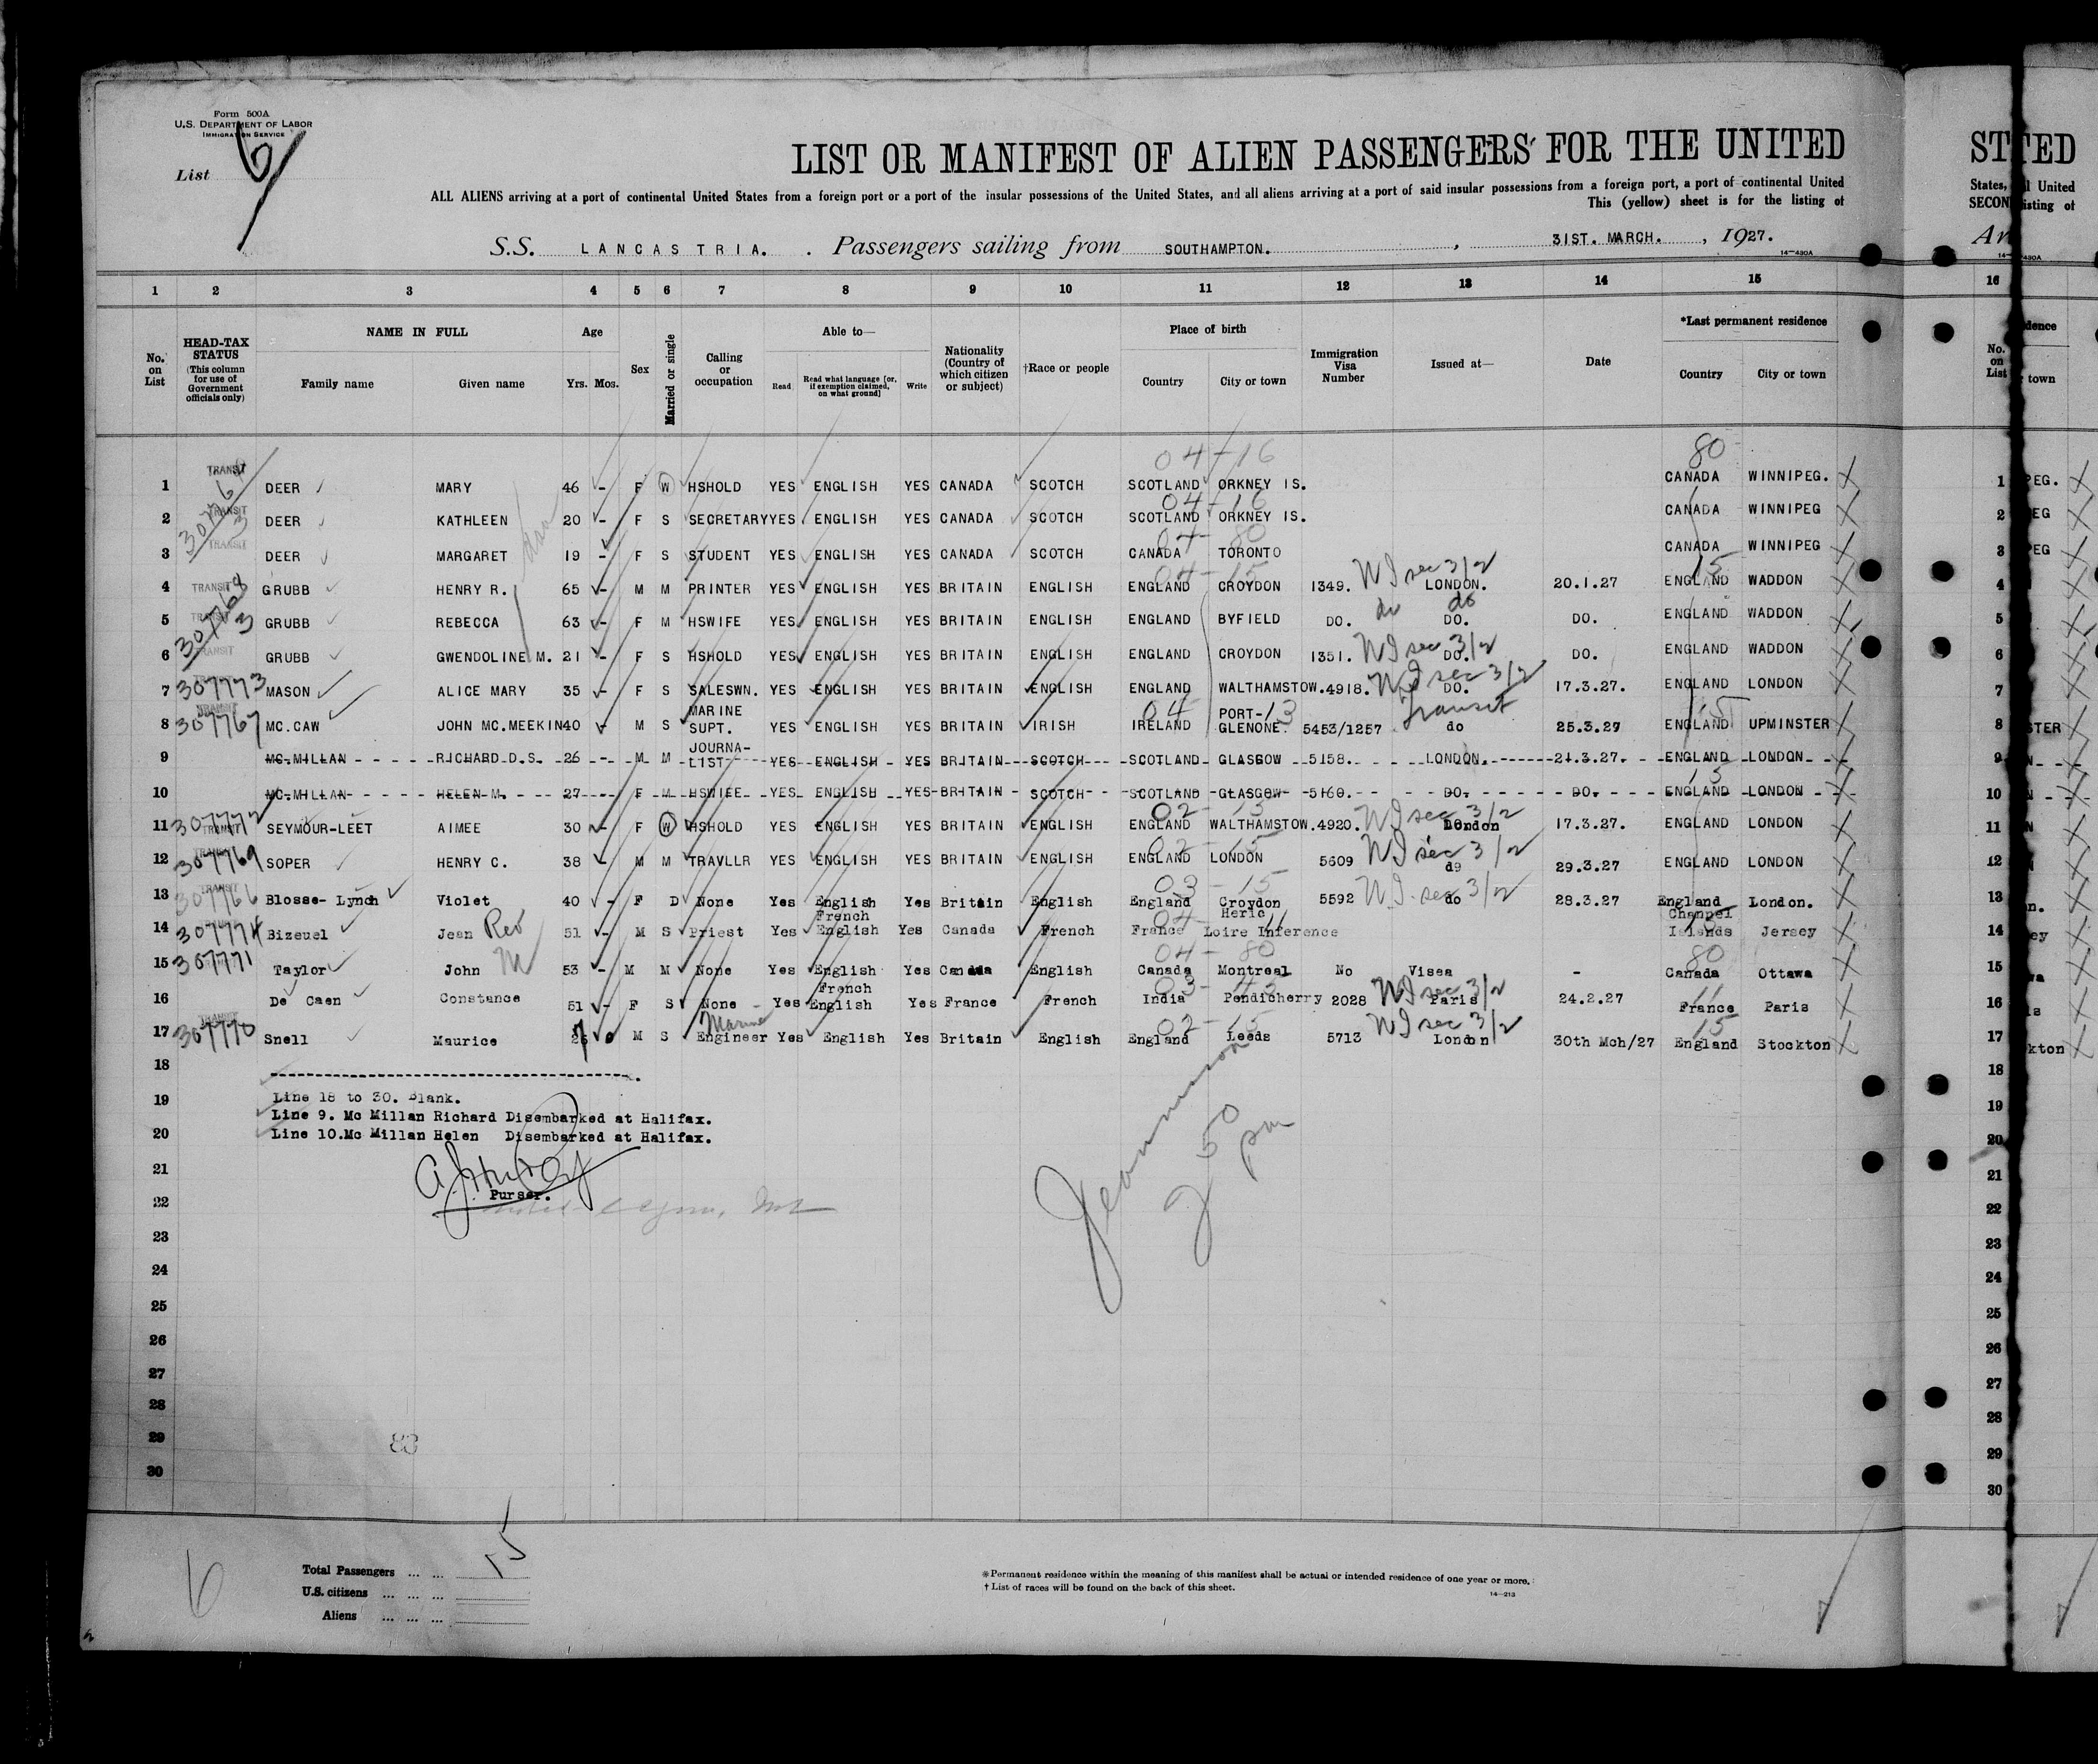 Form 500A
U.S. DEPARTMENT OF LABOR
IMMIGRATION SERVICE
List 6
LIST OR MANIFEST OF ALIEN PASSENGERS FOR THE UNITED
ALL ALIENS arriving at a port of continental United States from a foreign port or a port of the insular possessions of the United States, and all aliens arriving at a port of said insular possessions from a foreign port, a port of continental United
This (yellow) sheet is for the listing of
S.S. LANCASTRIA. Passengers sailing from SOUTHAMPTON. , 31ST. MARCH. , 1927.
14-430A
1 2 3 4 5 6 7 8 9 10 11 12 13 14 15
No. on List
HEAD-TAX STATUS (This column for use of Government officials only)
NAME IN FULL
Family name Given name
Age
Yrs. Mos.
Sex
Married or single
Calling or occupation
Able to—
Read Read what language [or, if exemption claimed, on what ground] Write
Nationality (Country of which citizen or subject)
†Race or people
Place of birth
Country City or town
Immigration Visa Number
Issued at—
Date
*Last permanent residence
Country City or town
04-16 80
1 TRANSIT DEER MARY 46 - F W HSHOLD YES ENGLISH YES CANADA SCOTCH SCOTLAND ORKNEY IS. CANADA WINNIPEG.
04-16
2 TRANSIT DEER KATHLEEN 20 - F S SECRETARY YES ENGLISH YES CANADA SCOTCH SCOTLAND ORKNEY IS. CANADA WINNIPEG
04-80
3 TRANSIT DEER MARGARET 19 - F S STUDENT YES ENGLISH YES CANADA SCOTCH CANADA TORONTO CANADA WINNIPEG
04-15 15
4 TRANSIT GRUBB HENRY R. 65 - M M PRINTER YES ENGLISH YES BRITAIN ENGLISH ENGLAND CROYDON 1349. LONDON. 20.1.27 ENGLAND WADDON
5 TRANSIT GRUBB REBECCA 63 - F M HSWIFE YES ENGLISH YES BRITAIN ENGLISH ENGLAND BYFIELD DO. do do DO. DO. ENGLAND WADDON
6 TRANSIT GRUBB GWENDOLINE M. 21 - F S HSHOLD YES ENGLISH YES BRITAIN ENGLISH ENGLAND CROYDON 1351. DO. DO. ENGLAND WADDON
7 307773 MASON ALICE MARY 35 - F S SALESWN. YES ENGLISH YES BRITAIN ENGLISH ENGLAND WALTHAMSTOW. 4918. DO. 17.3.27. ENGLAND LONDON
8 307767 TRANSIT MC.CAW JOHN MC.MEEKIN 40 - M S MARINE SUPT. YES ENGLISH YES BRITAIN IRISH 04 IRELAND PORT-GLENONE. 13 5453/1257 Transit do 25.3.27 ENGLAND UPMINSTER
9 MC.MILLAN RICHARD D.S. 26 - M M JOURNA-LIST YES ENGLISH YES BRITAIN SCOTCH SCOTLAND GLASGOW 5158. LONDON. 21.3.27. ENGLAND LONDON
10 MC.MILLAN HELEN M. 27 - F M HSWIFE YES ENGLISH YES BRITAIN SCOTCH SCOTLAND GLASGOW 5160. DO. DO. ENGLAND LONDON
11 307772 TRANSIT SEYMOUR-LEET AIMEE 30 - F W HSHOLD YES ENGLISH YES BRITAIN ENGLISH ENGLAND WALTHAMSTOW. 4920. London 17.3.27. ENGLAND LONDON
12 307769 TRANSIT SOPER HENRY C. 38 - M M TRAVLLR YES ENGLISH YES BRITAIN ENGLISH ENGLAND LONDON 5609 do 29.3.27 ENGLAND LONDON
03-15
13 307766 TRANSIT Blosse- Lynch Violet 40 - F D None Yes English Yes Britain English England Croydon 5592 do 28.3.27 England London.
14 307774 Bizeuel Jean Rev 51 - M S Priest Yes French English Yes Canada French France Heric Loire Inference Channel Islands Jersey
04-80 80
15 307771 Taylor John M 53 - M M None Yes English Yes Canada English Canada Montreal No Visea - Canada Ottawa
16 De Caen Constance 51 - F S None - Yes French English Yes France French India Pendicherry 2028 Paris 24.2.27 France Paris
02-15 15
17 307770 TRANSIT Snell Maurice M S Marine Engineer Yes English Yes Britain English England Leeds 5713 London 30th Mch/27 England Stockton
18
19 Line 18 to 30. Blank.
Line 9. Mc Millan Richard Disembarked at Halifax.
20 Line 10. Mc Millan Helen Disembarked at Halifax.
21
Purser.
22
23
24
25
26
27
28
29
83
30
2 50 pm
6
Total Passengers ... ... 15
U.S. citizens ... ... ...
Aliens ... ... ...
*Permanent residence within the meaning of this manifest shall be actual or intended residence of one year or more.
† List of races will be found on the back of this sheet.
14-213